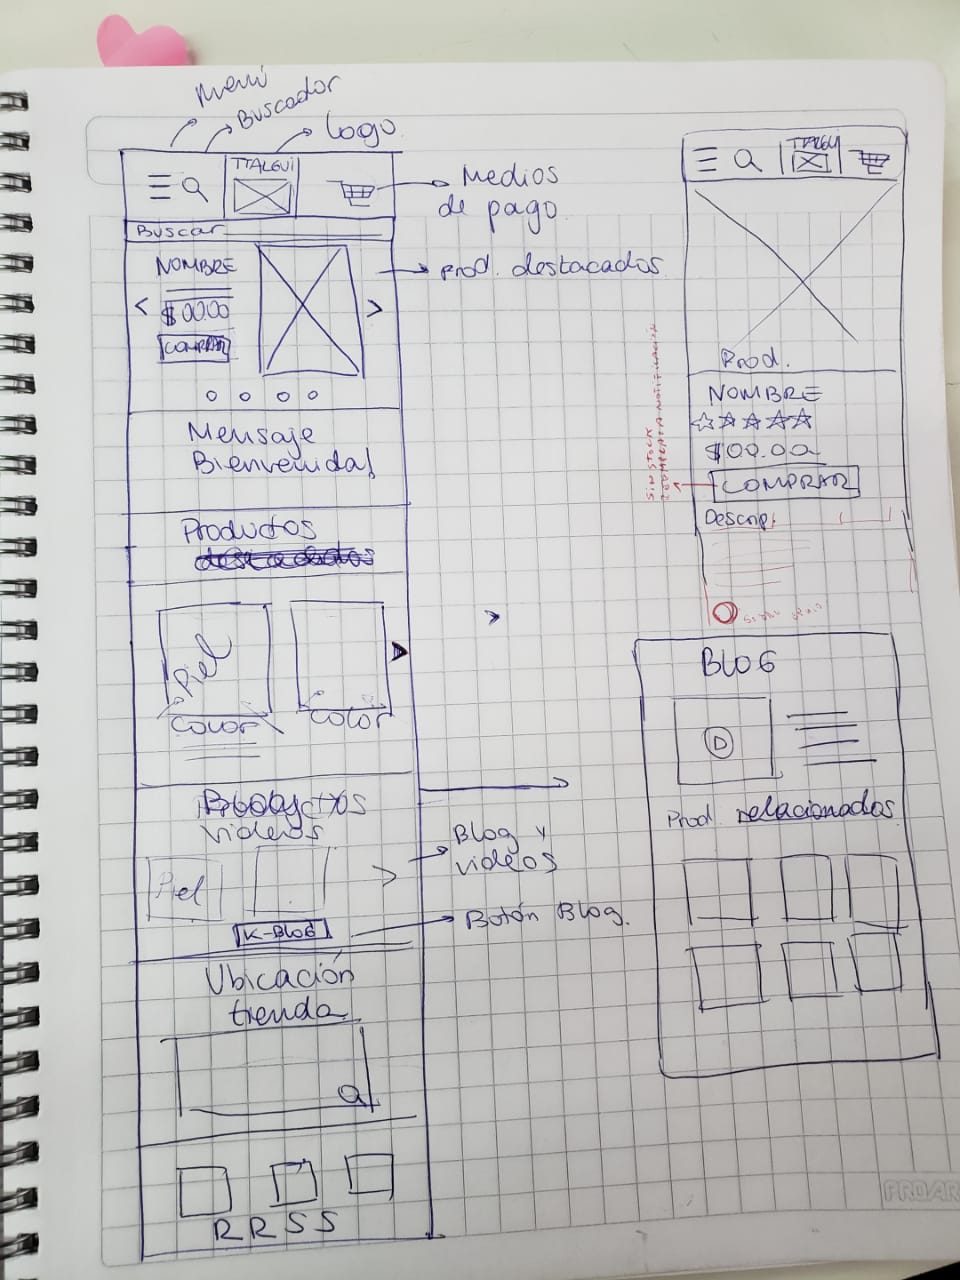 Menú
Buscador
Logo
TTALGUI
Medios
de pago
Buscar
NOMBRE
$00.00
COMPRAR
Prod. destacados
Mensaje
Bienvenida!
Productos
destacados
Piel
Color
Color
videos
Piel
K-BLOG
Blog y
videos
Botón Blog.
Ubicación
tienda
RRSS
TTALGUI
Prod.
NOMBRE
$00.00
COMPRAR
SIN STOCK
Descrip.
BLOG
D
Prod. relacionados
PROAR